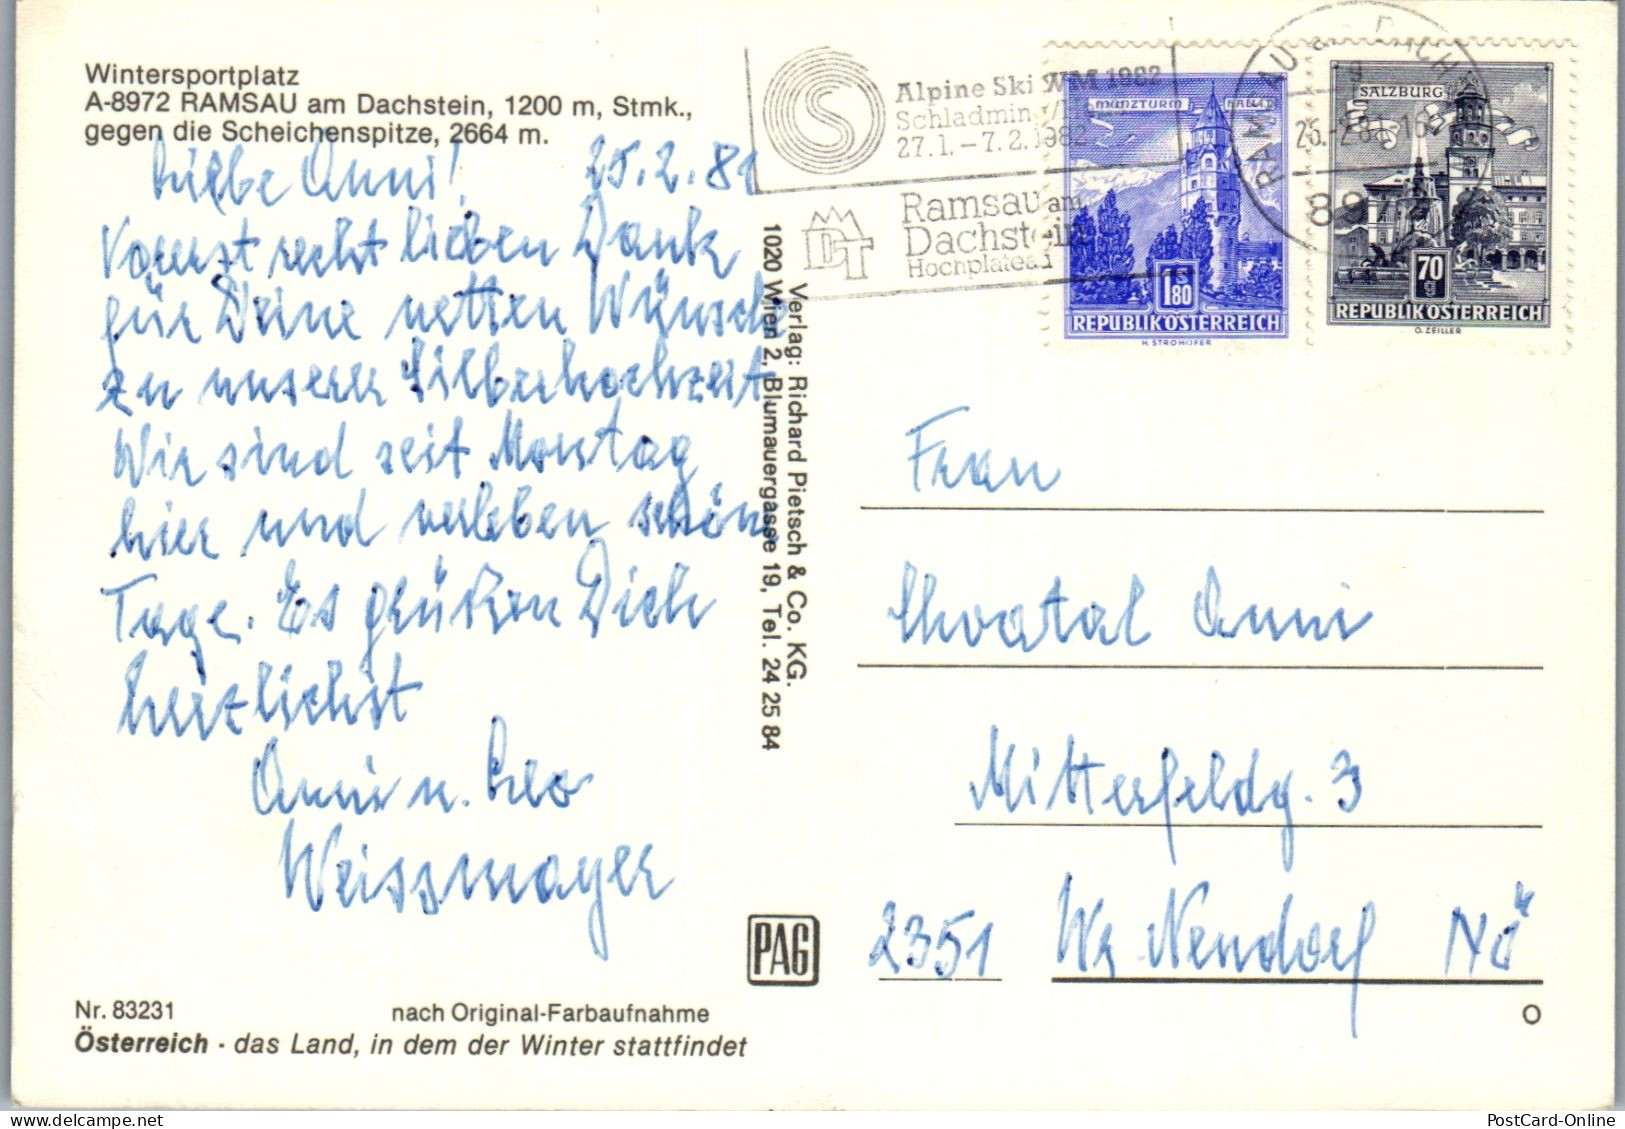 Wintersportplatz
A-8972 RAMSAU am Dachstein, 1200 m, Stmk.,
gegen die Scheichenspitze, 2664 m.
Liebe Anni! 25.2.81
Vorerst recht lieben Dank
für Deine netten Wünsche
zu unserer Silberhochzeit
Wir sind seit Montag
hier und verleben schöne
Tage. Es grüßen Dich
herzlichst
Anni u. Leo
Weissmayer
Nr. 83231 nach Original-Farbaufnahme
Österreich · das Land, in dem der Winter stattfindet
Verlag: Richard Pietsch & Co. KG.
1020 Wien 2, Blumauergasse 19, Tel. 24 25 84
PAG
Alpine Ski WM 1982
Schladming
27.1. – 7.2.1982
Ramsau am
Dachstein
Hochplateau
DT
RAMSAU am DACH
MÜNZTURM HALL
1.80
REPUBLIK ÖSTERREICH
H. STROHOFER
SALZBURG
70
REPUBLIK ÖSTERREICH
O. ZEILLER
Frau
Chvatal Anni
Mitterfeldg. 3
2351 Wr Neudorf NÖ
O
PostCard-Online